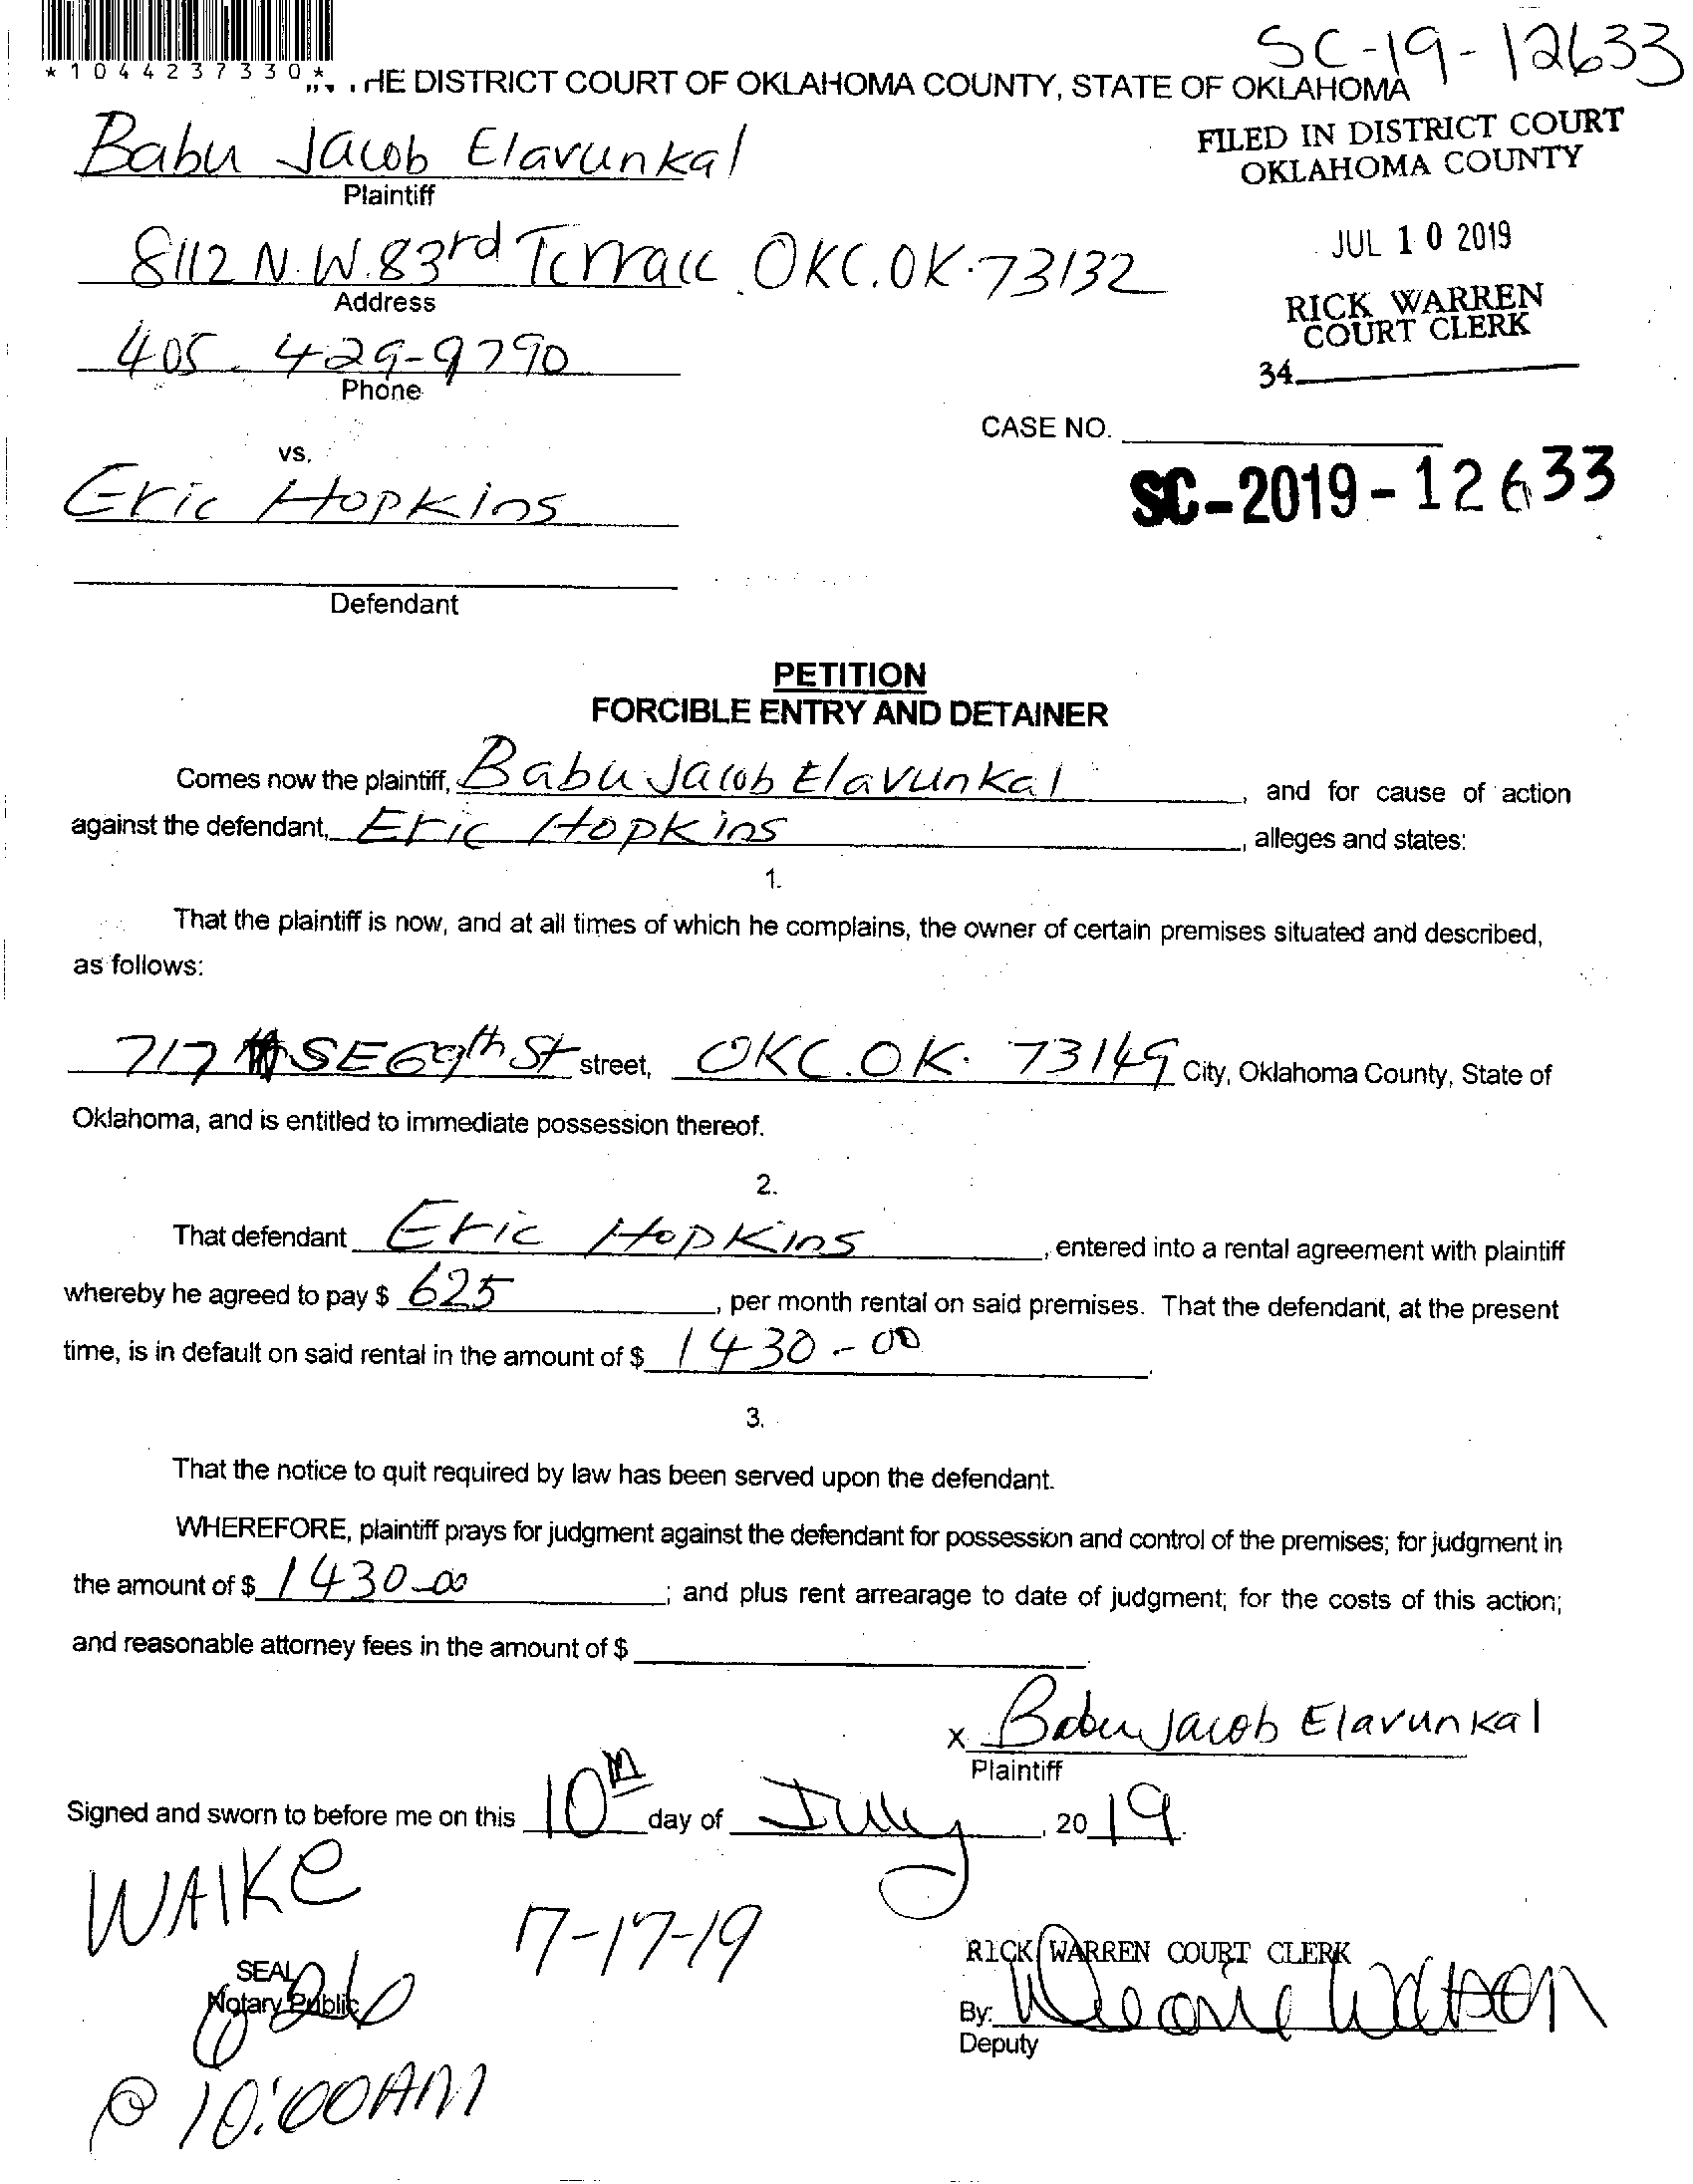 SC-19-12633
*1044237330*
THE DISTRICT COURT OF OKLAHOMA COUNTY, STATE OF OKLAHOMA
Babu Jacob Elavunkal
Plaintiff
FILED IN DISTRICT COURT
OKLAHOMA COUNTY
8112 N.W. 83rd Terrace OKC. OK. 73132
Address
JUL 10 2019
RICK WARREN
COURT CLERK
405. 429-9790
Phone
34
CASE NO.
vs.
SC-2019-12633
Eric Hopkins
Defendant
PETITION
FORCIBLE ENTRY AND DETAINER
Comes now the plaintiff, Babu Jacob Elavunkal, and for cause of action
against the defendant, Eric Hopkins, alleges and states:
1.
That the plaintiff is now, and at all times of which he complains, the owner of certain premises situated and described,
as follows:
717 SE 69th St street, OKC. OK. 73149 City, Oklahoma County, State of
Oklahoma, and is entitled to immediate possession thereof.
2.
That defendant Eric Hopkins, entered into a rental agreement with plaintiff
whereby he agreed to pay $ 625, per month rental on said premises. That the defendant, at the present
time, is in default on said rental in the amount of $ 1430-00.
3.
That the notice to quit required by law has been served upon the defendant.
WHEREFORE, plaintiff prays for judgment against the defendant for possession and control of the premises; for judgment in
the amount of $ 1430-00; and plus rent arrearage to date of judgment; for the costs of this action;
and reasonable attorney fees in the amount of $
x Babu Jacob Elavunkal
Plaintiff
Signed and sworn to before me on this 10th day of July, 2019.
WAIKE
7-17-19
SEAL
Notary Public
RICK WARREN COURT CLERK
By:
Deputy
@ 10:00AM